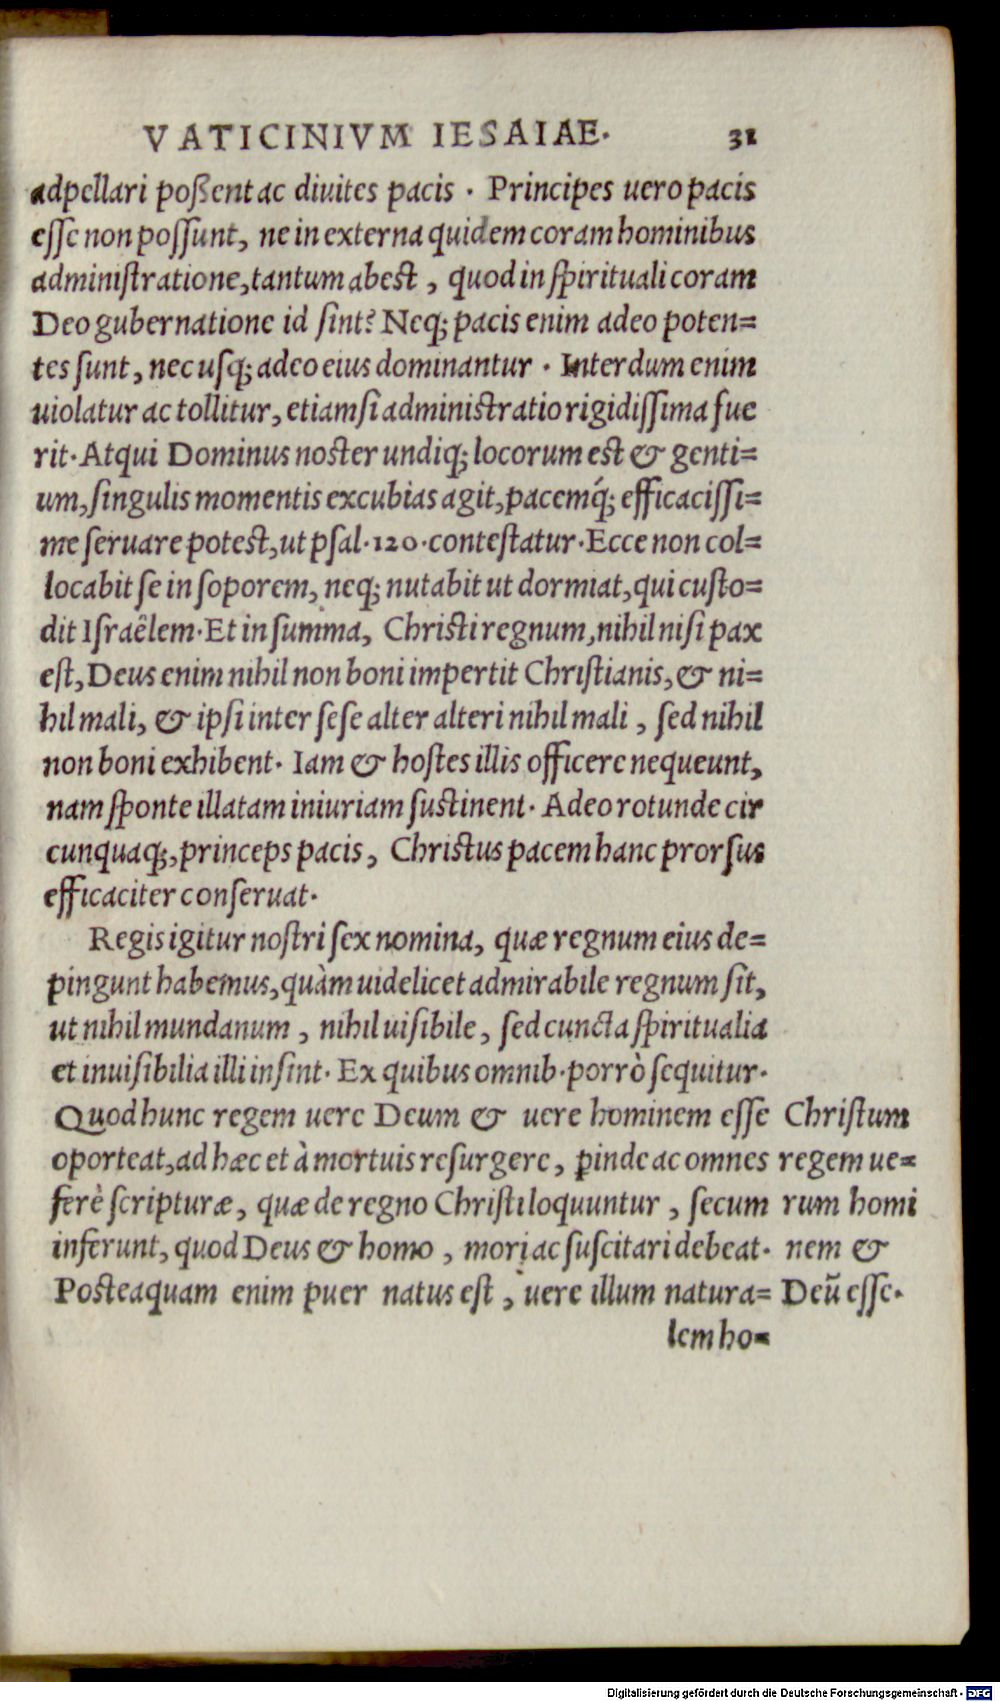 VATICINIVM IESAIAE. 31
adpellari poßent ac diuites pacis . Principes uero pacis
eſſe non poſſunt, ne in externa quidem coram hominibus
adminiſtratione, tantum abest , quod in ſpirituali coram
Deo gubernatione id ſint? Neq; pacis enim adeo poten=
tes ſunt, nec uſq; adeo eius dominantur . Interdum enim
uiolatur ac tollitur, etiamſi administratio rigidiſſima fue
rit. Atqui Dominus noster undiq; locorum est & genti=
um, ſingulis momentis excubias agit, pacemq́; efficaciſſi=
me ſeruare potest, ut pſal. 120. conteſtatur. Ecce non col=
locabit ſe in ſoporem, neq; nutabit ut dormiat, qui cuſto=
dit Iſraêlem. Et in ſumma, Christi regnum, nihil niſi pax
eſt, Deus enim nihil non boni impertit Chriſtianis, & ni=
hil mali, & ipſi inter ſeſe alter alteri nihil mali , ſed nihil
non boni exhibent. Iam & hoſtes illis officere nequeunt,
nam ſponte illatam iniuriam ſustinent. Adeo rotunde cir
cunquaq;, princeps pacis, Christus pacem hanc prorſus
efficaciter conſeruat.
Regis igitur noſtri ſex nomina, quæ regnum eius de=
pingunt habemus, quàm uidelicet admirabile regnum ſit,
ut nihil mundanum , nihil uiſibile, ſed cuncta ſpiritualia
et inuiſibilia illi inſint. Ex quibus omnib. porrò ſequitur.
Quod hunc regem uere Deum & uere hominem eſſe
oporteat, ad hæc et à mortuis reſurgere, ꝑinde ac omnes
ferè ſcripturæ, quæ de regno Chriſti loquuntur , ſecum
inferunt, quod Deus & homo , mori ac ſuſcitari debeat.
Posteaquam enim puer natus eſt , uere illum natura=
lem ho=
Chriſtum
regem ue=
rum homi
nem &
Deũ eſſe.
Digitalisierung gefördert durch die Deutsche Forschungsgemeinschaft - DFG